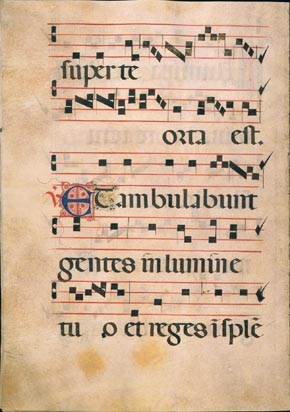 super te
orta est.
℣ Et ambulabunt
gentes in lumine
tu o et reges ī splē